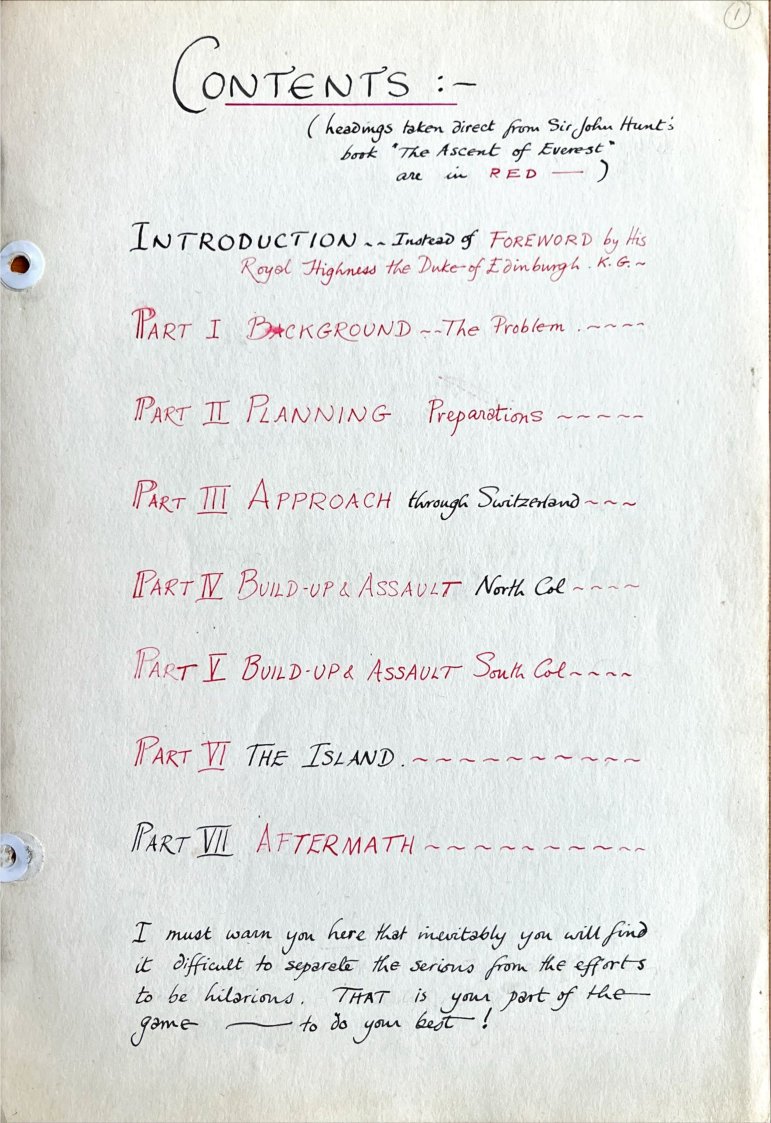 1
CONTENTS :-
( headings taken direct from Sir John Hunt's
book "The Ascent of Everest"
are in RED — )
INTRODUCTION ~~ Instead of FOREWORD by His
Royal Highness the Duke of Edinburgh. K.G. ~
PART I BACKGROUND ~~ The Problem . ~~~~
PART II PLANNING Preparations ~~~~~
PART III APPROACH through Switzerland ~~~
PART IV BUILD-UP & ASSAULT North Col ~~~~
PART V BUILD-UP & ASSAULT South Col ~~~~
PART VI THE ISLAND. ~~~~~~~~~~
PART VII AFTERMATH ~~~~~~~~~
I must warn you here that inevitably you will find
it difficult to separate the serious from the efforts
to be hilarious. THAT is your part of the
game —— to do your best !